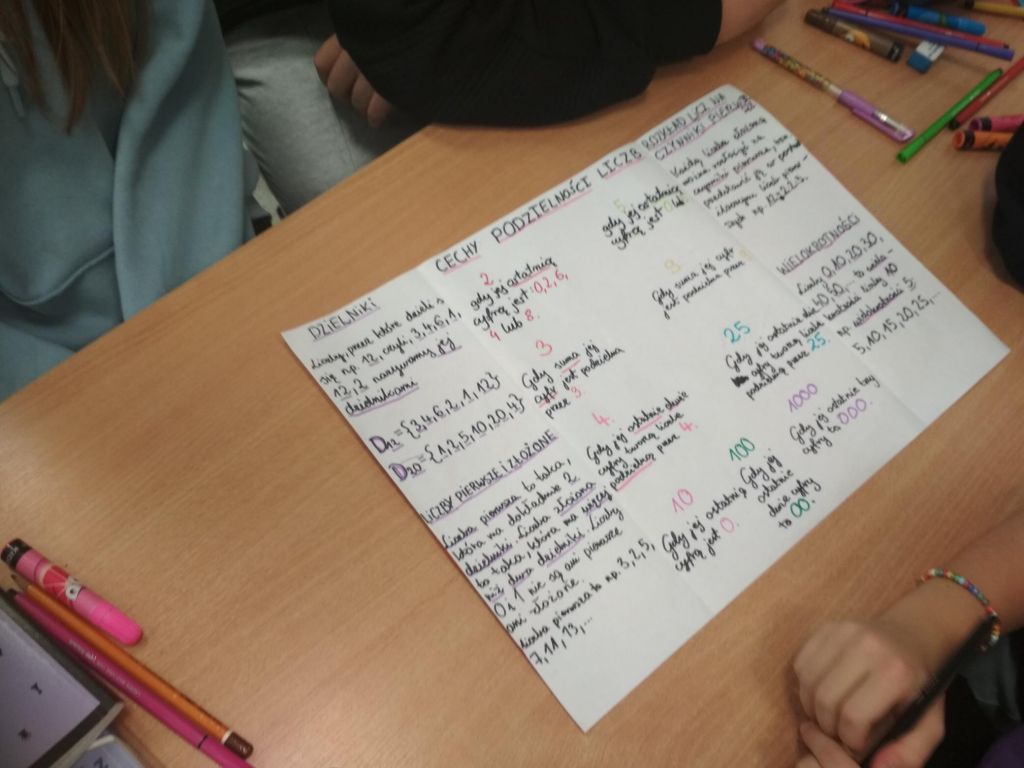 DZIELNIKI
Liczby, przez które dzieli
się np. 12, czyli, 3,4,6,1,
12,2 nazywamy jej
dzielnikami
D12={3,4,6,2,1,12}
D20={1,2,5,10,20,4}
LICZBY PIERWSZE I ZŁOŻONE
Liczba pierwsza to taka,
która ma dokładnie 2
dzielniki. Liczba złożona
to taka, która ma więcej
niż dwa dzielniki. Liczby
0 i 1 nie są ani pierwsze
ani złożone.
Liczba pierwsza to np. 3,2,5,
7,11,13,...
CECHY PODZIELNOŚCI LICZB
2
gdy jej ostatnią
cyfrą jest 0,2,6,
4 lub 8.
3
Gdy suma jej
cyfr jest podzielna
przez 3.
4.
Gdy jej ostatnie dwie
cyfry tworzą liczbę
podzielną przez 4.
5
gdy jej ostatnią
cyfrą jest lub
9
Gdy suma jej cyfr
jest podzielna przez
25
Gdy jej ostatnie dwie
cyfry tworzą liczbę
podzielną przez 25.
10
Gdy jej ostatnią
cyfrą jest 0.
100
Gdy jej
ostatnie
dwie cyfry
to 00.
1000
Gdy jej ostatnie trzy
cyfry to 000.
ROZKŁAD LICZB NA
CZYNNIKI PIERWSZE
Każdą liczbę złożoną
można rozłożyć na
czynniki pierwsze,
przedstawić ją w postaci
iloczynu liczb pierw-
szych np. 12=2·2·3.
WIELOKROTNOŚCI
Liczby 0,10,20,30,
40,50,... to wielo-
krotności liczby 10
np. wielokrotności 5
5,10,15,20,25,...